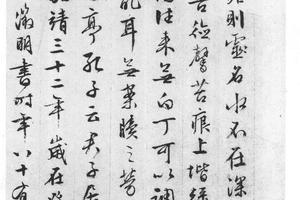 則靈名水不在深
吾德馨苔痕上堦緑
往来無白丁可以調
亂耳無案牘之勞
亭孔子云君子居
靖三十二年歲在
徵明書時年八十有